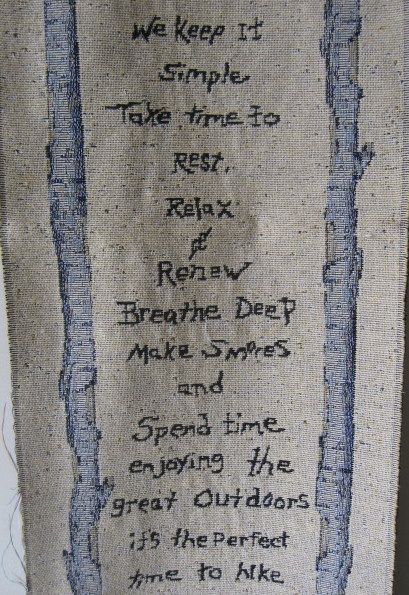 We Keep It
Simple
Take time to
Rest,
Relax
&
Renew
Breathe Deep
Make Smores
and
Spend time
enjoying the
great Outdoors
it's the Perfect
time to hike